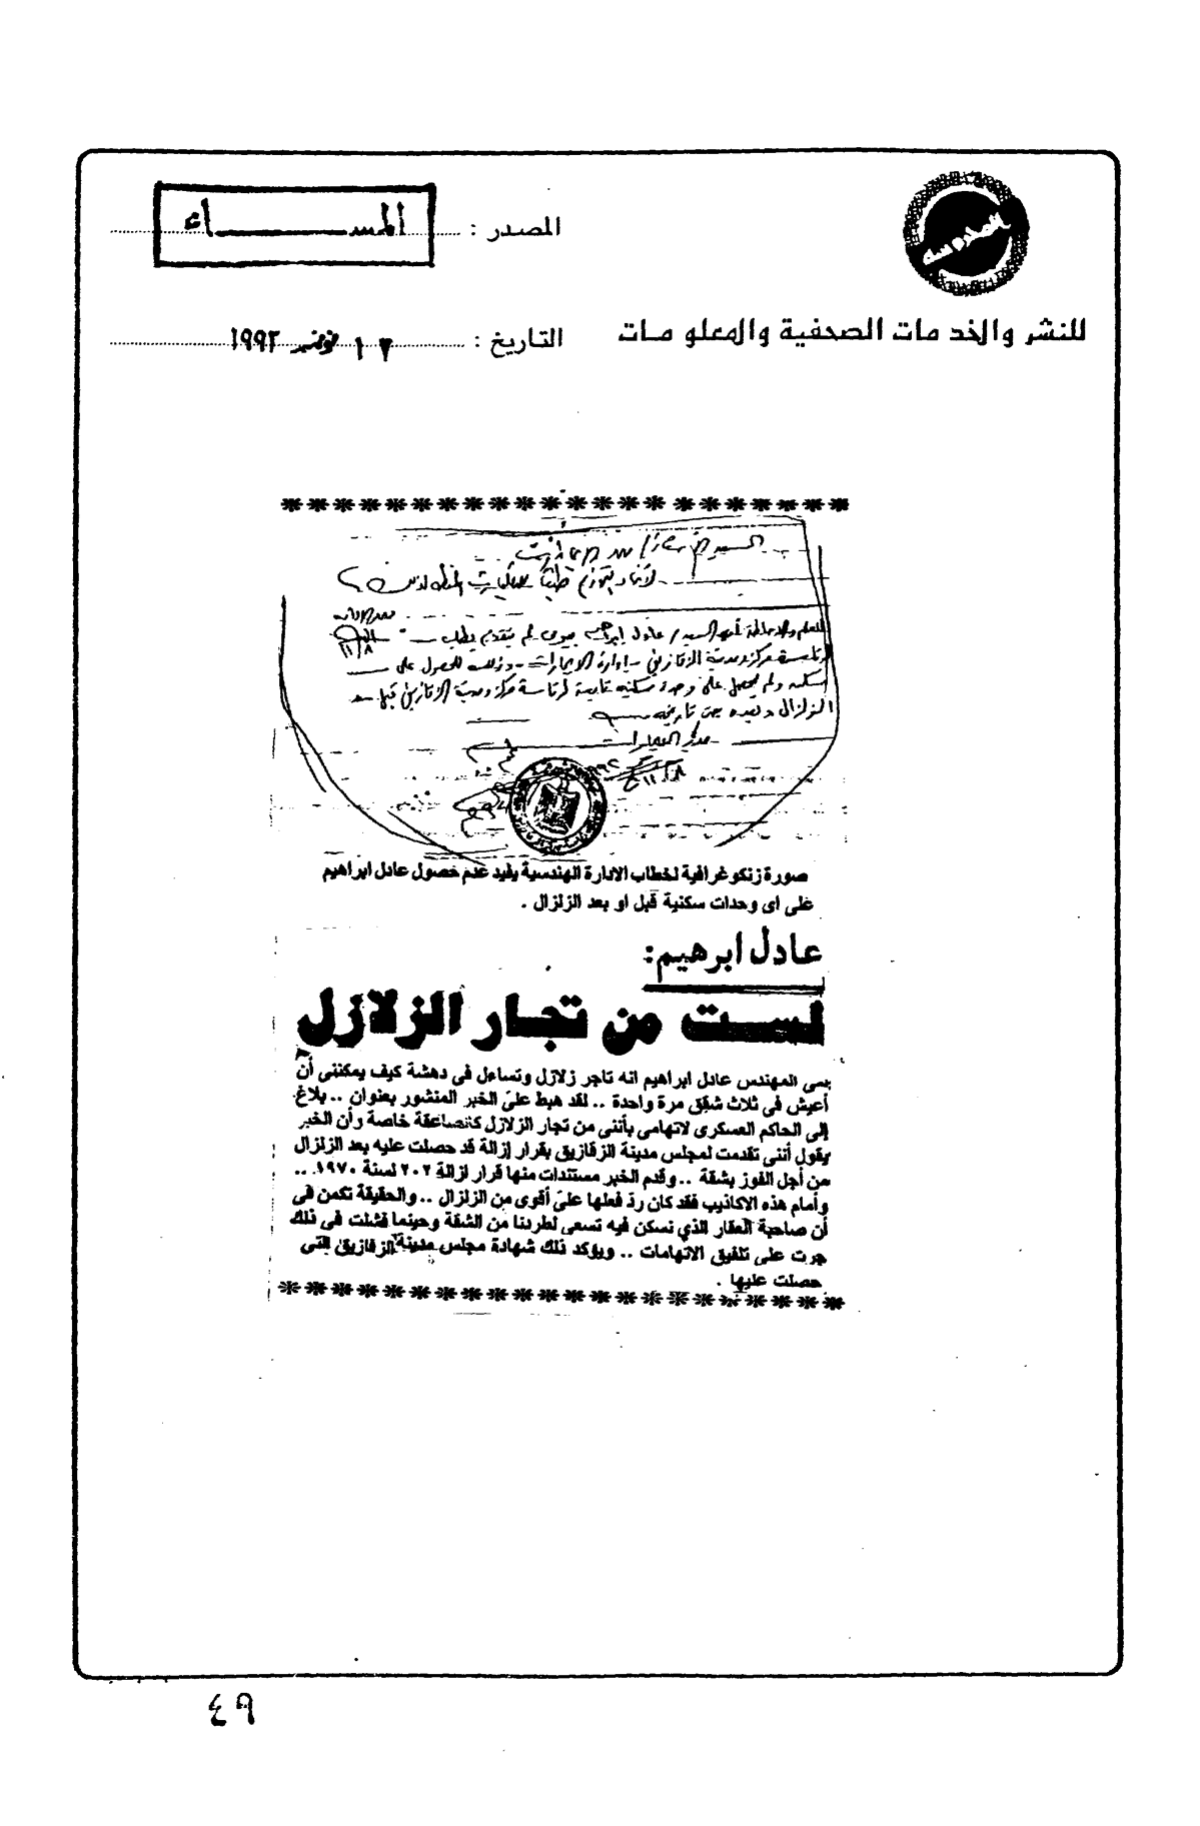 المصدر : المســـاء
للنشر والخدمات الصحفية والمعلومات
التاريخ : ١٣ نوفمبر ١٩٩٢
للعلم والاحاطة بأن السيد / عادل ابراهيم لم يتقدم بطلب
لرئاسة مركز ومدينة الزقازيق - إدارة الايجارات - وذلك للحصول على
سكن ولم يحصل على وحدة سكنية تابعة لرئاسة مركز ومدينة الزقازيق قبل
الزلزال وبعده حتى تاريخه
صورة زنكوغرافية لخطاب الادارة الهندسية يفيد عدم حصول عادل ابراهيم
على اى وحدات سكنية قبل او بعد الزلزال .
عادل ابرهيم:
لست من تجار الزلازل
المهندس عادل ابراهيم انه تاجر زلازل وتساءل فى دهشة كيف يمكننى أن
أعيش فى ثلاث شقق مرة واحدة .. لقد هبط علىّ الخبر المنشور بعنوان .. بلاغ
إلى الحاكم العسكرى لاتهامى بأننى من تجار الزلازل كالصاعقة خاصة وأن الخبر
يقول أننى تقدمت لمجلس مدينة الزقازيق بقرار إزالة قد حصلت عليه بعد الزلزال
من أجل الفوز بشقة .. وقدم الخبر مستندات منها قرار ازالة ٢٠٢ لسنة ١٩٧٠ ..
وأمام هذه الاكاذيب فقد كان رد فعلها علىّ أقوى من الزلزال .. والحقيقة تكمن فى
أن صاحبة العقار الذي نسكن فيه تسعى لطردنا من الشقة وحينما فشلت فى ذلك
جرت على تلفيق الاتهامات .. ويؤكد ذلك شهادة مجلس مدينة الزقازيق التى
حصلت عليها .
٤٩